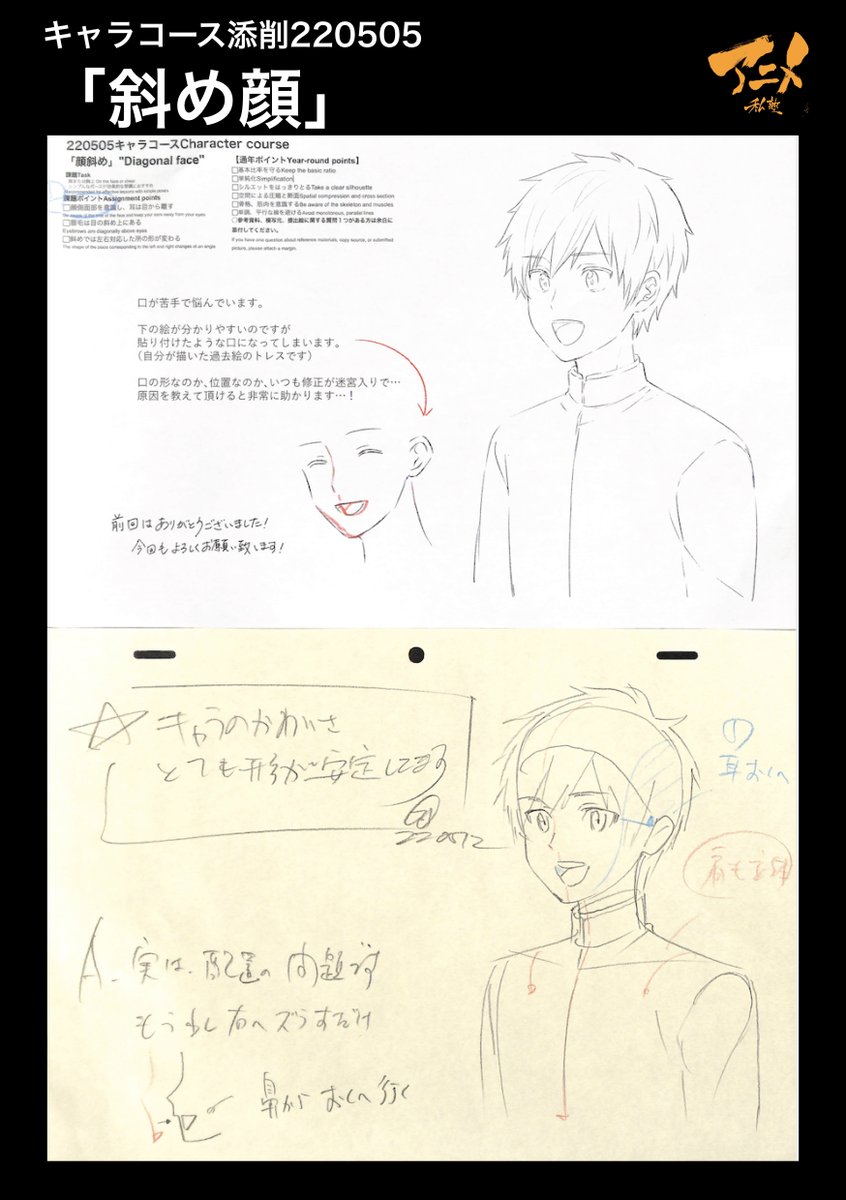 キャラコース添削220505
「斜め顔」
アニメ
私塾
220505キャラコースCharacter course
「顔斜め」"Diagonal face"
課題Task
課題ポイントAssignment points
□顔側面部を意識し、耳は目から離す
□眉毛は目の斜め上にある
Eyebrows are diagonally above eyes
□斜めでは左右対応した所の形が変わる
The shape of the place corresponding to the left and right changes at an angle
【通年ポイントYear-round points】
□基本比率を守るKeep the basic ratio
□単純化Simplification
□シルエットをはっきりとるTake a clear silhouette
□空間による圧縮と断面Spatial compression and cross section
□骨格、筋肉を意識するBe aware of the skeleton and muscles
□単調、平行な線を避けるAvoid monotonous, parallel lines
○参考資料、模写元、提出絵に関する質問１つがある方は余白に
添付してください。
If you have one question about reference materials, copy source, or submitted
picture, please attach a margin.
口が苦手で悩んでいます。
下の絵が分かりやすいのですが
貼り付けたような口になってしまいます。
（自分が描いた過去絵のトレスです）
口の形なのか、位置なのか、いつも修正が迷宮入りで…
原因を教えて頂けると非常に助かります…！
前回はありがとうございました！
今回もよろしくお願い致します！
☆ キャラのかわいさ
とても形が安定してます
220512
①
耳おくへ
肩も立体
A. 実は、配置の問題です
もう少し右へズラすだけ
鼻からおくへ行く